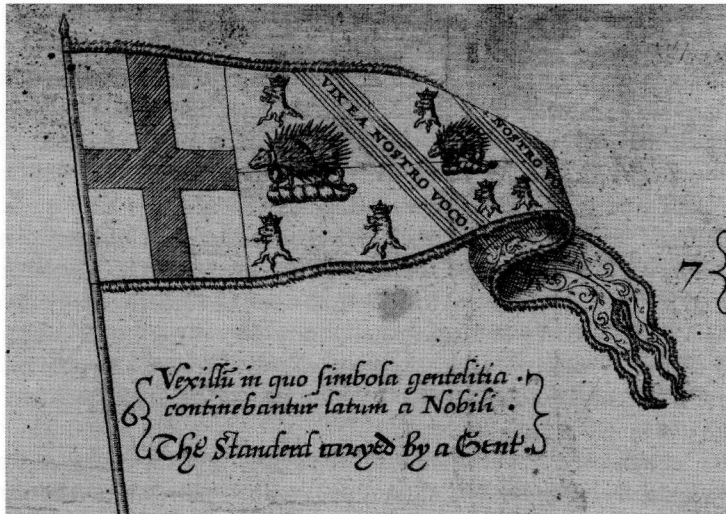 VIX EA NOSTRO VOCO.
. NOSTRO VO
7
6
Vexillū in quo simbola gentelitia .
continebantur latum a Nobili .
The Standerd caryed by a Gent.